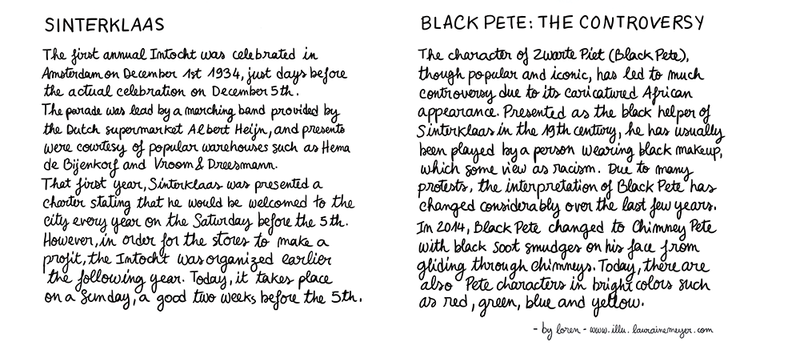 SINTERKLAAS
The first annual Intocht was celebrated in
Amsterdam on December 1st 1934, just days before
the actual celebration on December 5th.
The parade was lead by a marching band provided by
the Dutch supermarket Albert Heijn, and presents
were courtesy of popular warehouses such as Hema
de Bijenkorf and Vroom & Dreesmann.
That first year, Sinterklaas was presented a
charter stating that he would be welcomed to the
city every year on the Saturday before the 5th.
However, in order for the stores to make a
profit, the Intocht was organized earlier
the following year. Today, it takes place
on a Sunday, a good two weeks before the 5th.
BLACK PETE: THE CONTROVERSY
The character of Zwarte Piet (Black Pete),
though popular and iconic, has led to much
controversy due to its caricatured African
appearance. Presented as the black helper of
Sinterklaas in the 19th century, he has usually
been played by a person wearing black makeup,
which some view as racism. Due to many
protests, the interpretation of Black Pete has
changed considerably over the last few years.
In 2014, Black Pete changed to Chimney Pete
with black soot smudges on his face from
gliding through chimneys. Today, there are
also Pete characters in bright colors such
as red, green, blue and yellow.
- by loren - www.illu.laurainemeyer.com